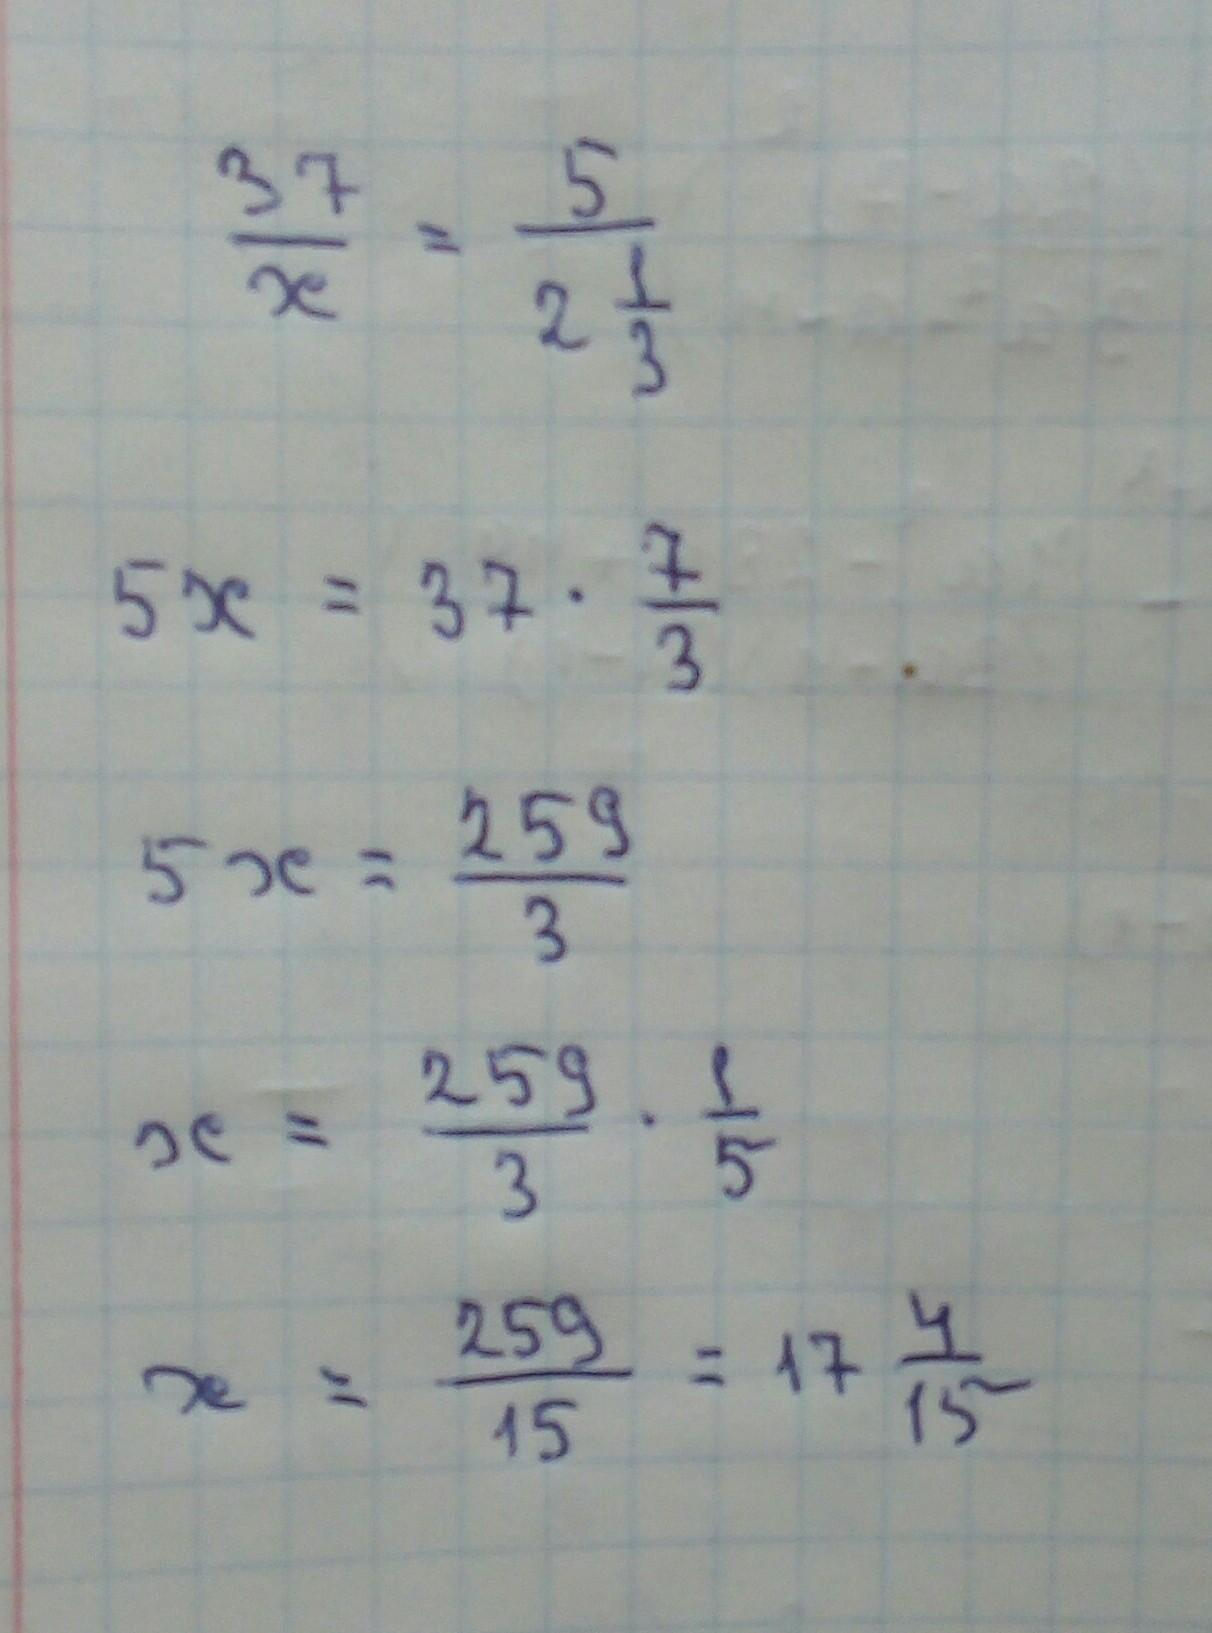 37/x = 5/(2 1/3)
5x = 37 · 7/3
5x = 259/3
x = 259/3 · 1/5
x = 259/15 = 17 4/15